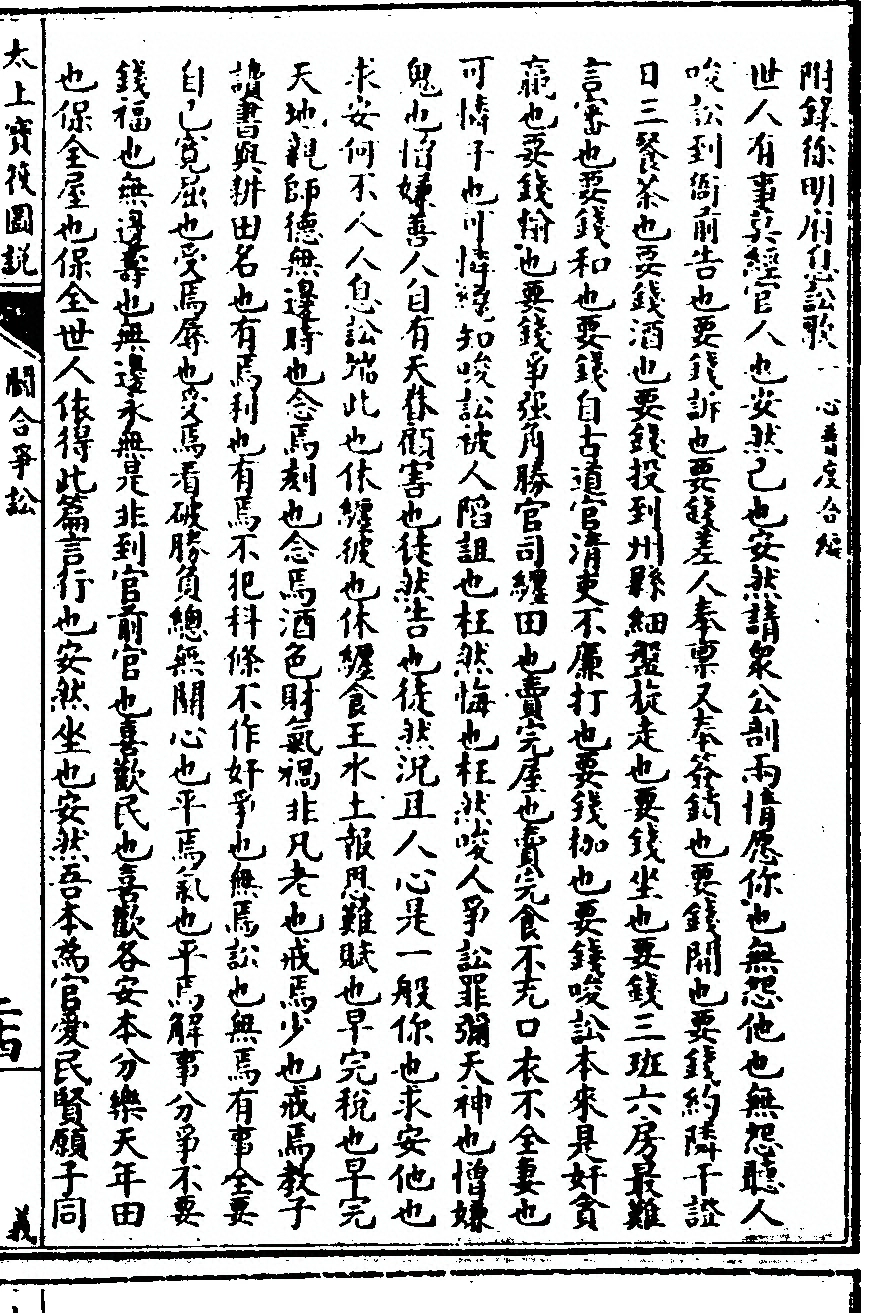 附錄徐明府息訟歌 一心普度合編
世人有事莫經官人也安然己也安然請衆公剖兩情愿你也無怨他也無怨聽人
唆訟到衙前告也要錢訴也要錢差人奉票又奉簽鎖也要錢開也要錢約隣干證
日三餐茶也要錢酒也要錢投到州縣細盤旋走也要錢坐也要錢三班六房最難
言審也要錢和也要錢自古道官清吏不廉打也要錢枷也要錢唆訟本來是奸貪
贏也要錢輸也要錢爭强角勝官司纏田也賣完屋也賣完食不充口衣不全妻也
可憐子也可憐纔知唆訟被人陷詛也枉然悔也枉然唆人爭訟罪彌天神也憎嫌
鬼也憎嫌善人自有天眷顧害也徒然告也徒然況且人心是一般你也求安他也
求安何不人人息訟端此也休纏彼也休纏食王水土報恩難賦也早完稅也早完
天地親師德無邊時也念焉刻也念焉酒色財氣禍非凡老也戒焉少也戒焉教子
讀書與耕田名也有焉利也有焉不犯科條不作奸爭也無焉訟也無焉有事全要
自己寬屈也受焉辱也受焉看破勝負總無關心也平焉氣也平焉解事分爭不要
錢福也無邊壽也無邊永無是非到官前官也喜歡民也喜歡各安本分樂天年田
也保全屋也保全世人依得此篇言行也安然坐也安然吾本為官愛民賢願子同
太上寶筏圖說 鬭合爭訟 二四 義